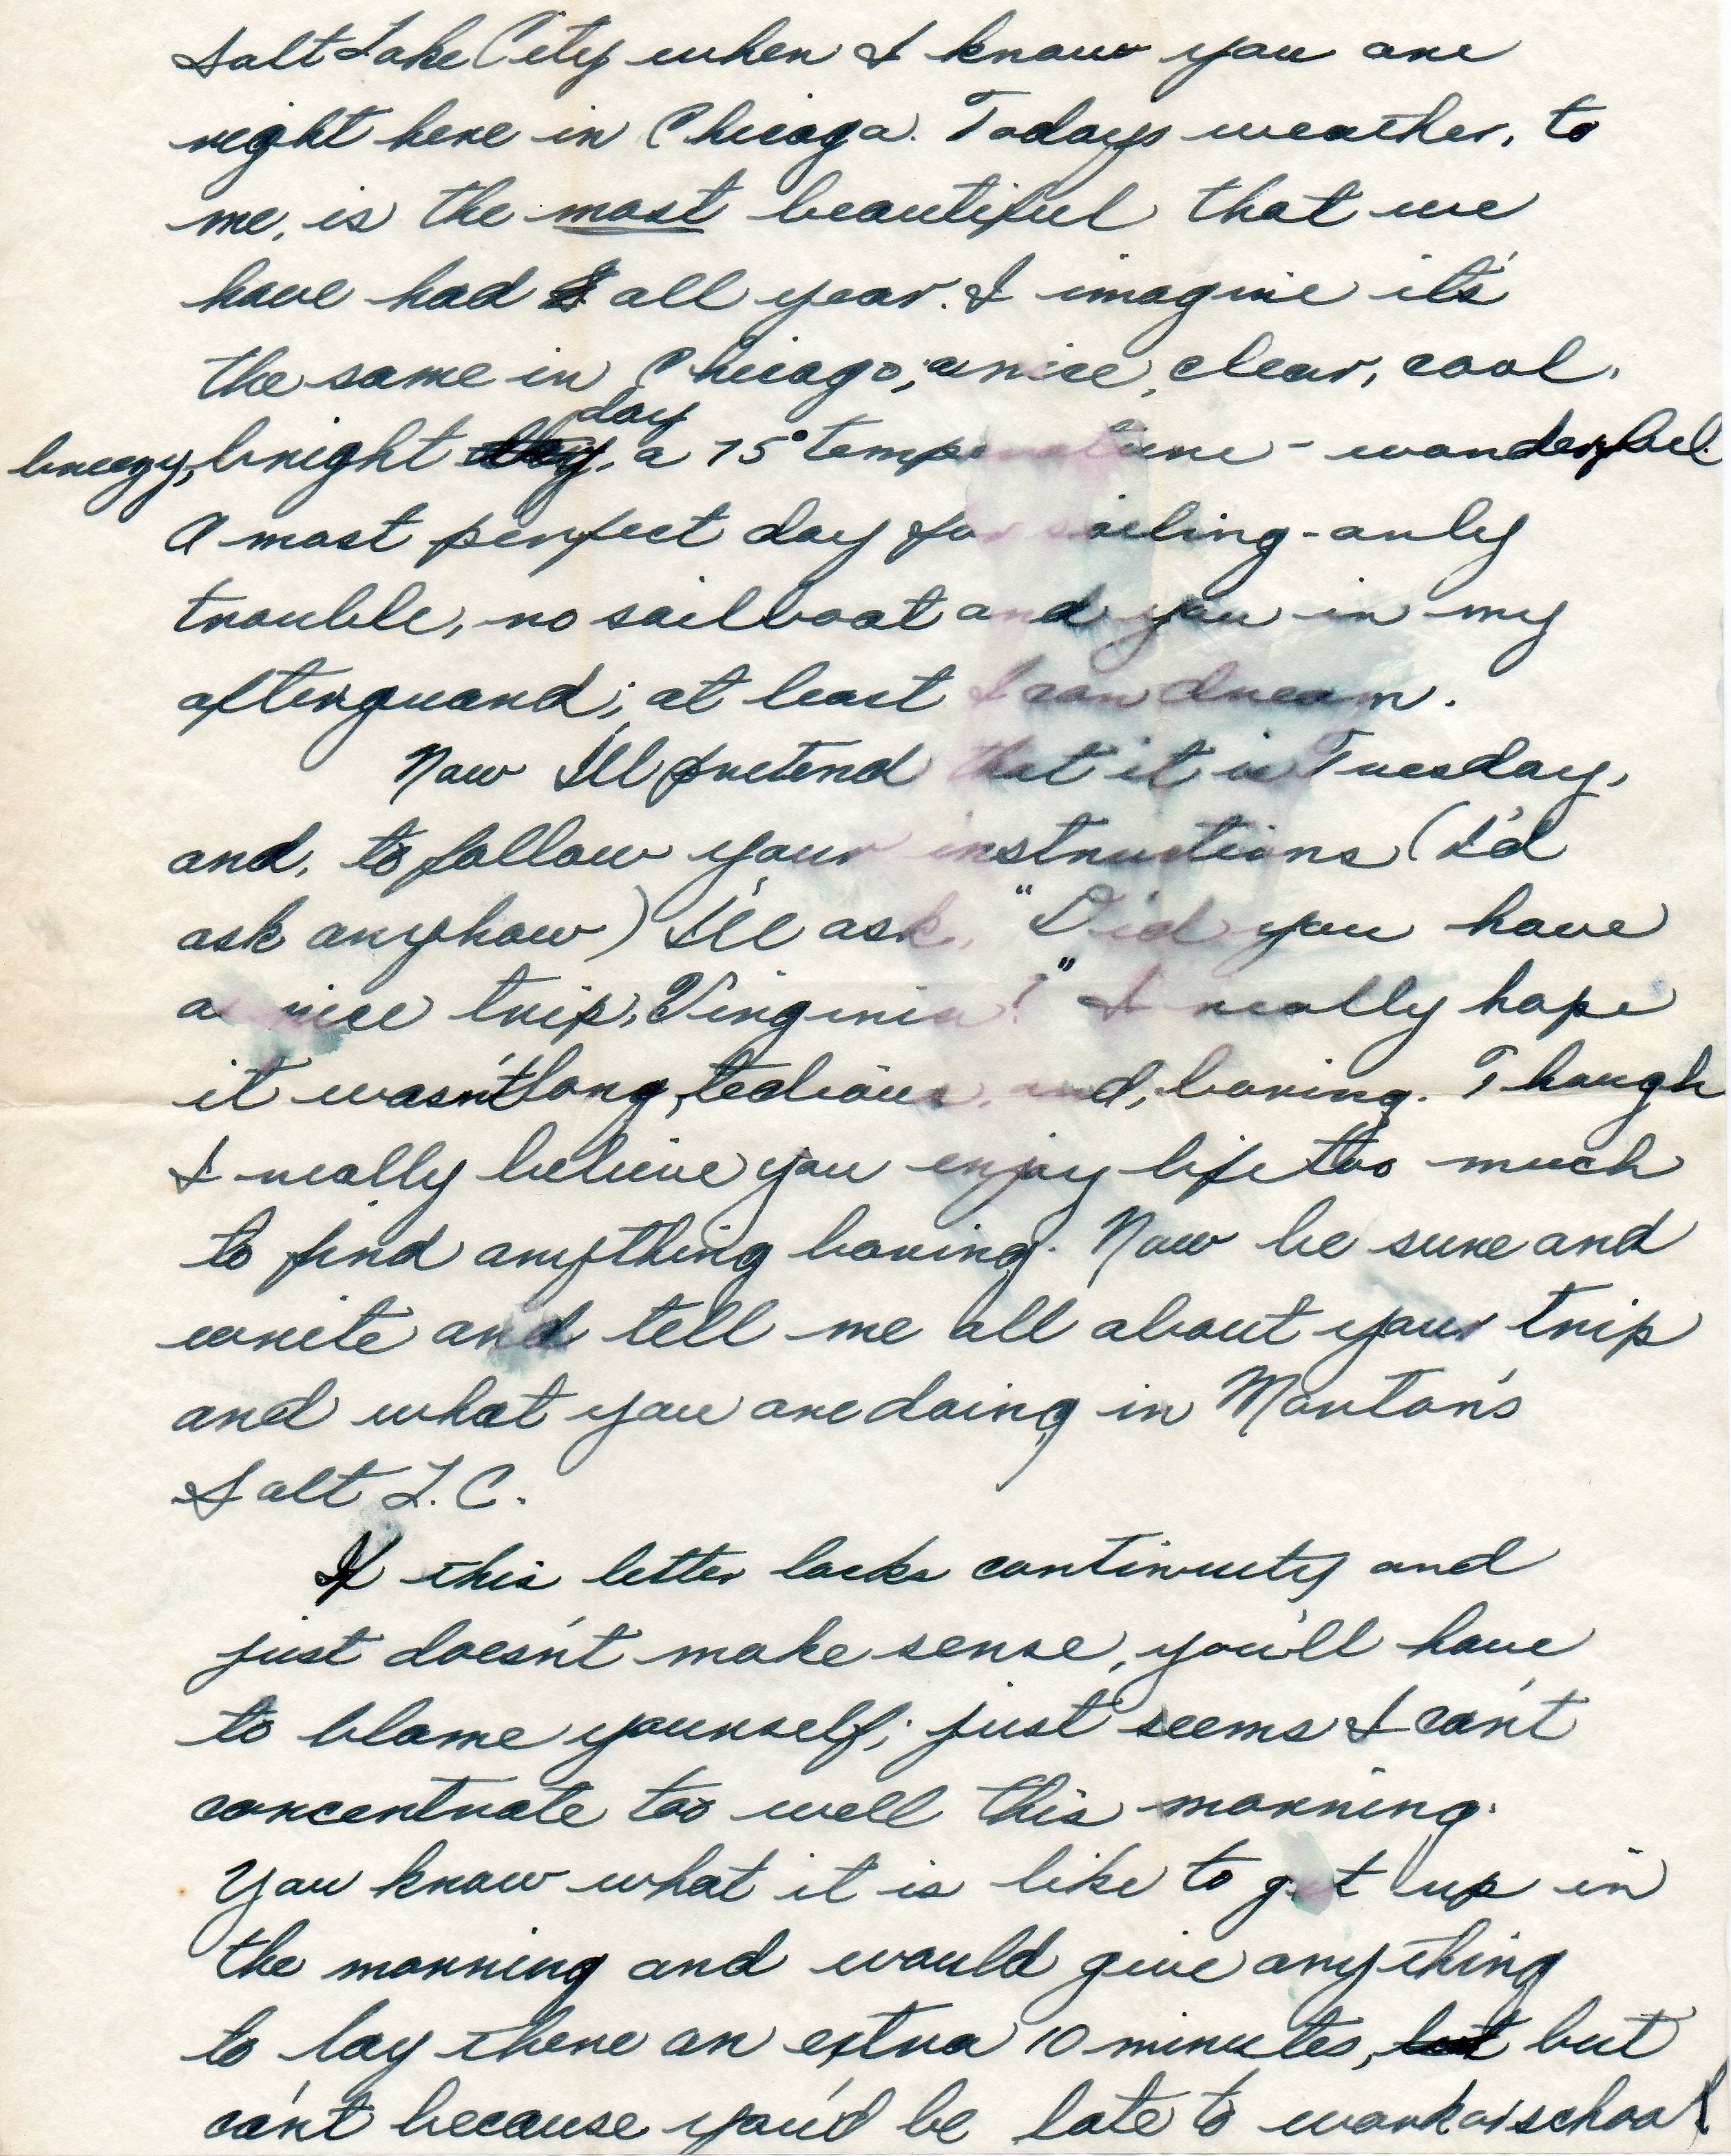 Salt Lake City when I know you are
right here in Chicago. Todays weather, to
me, is the most beautiful that we
have had all year. I imagine it's
the same in Chicago; a nice, clear, cool,
day
breezy, bright day, a 75° temperature - wonderful.
A most perfect day for sailing - only
trouble, no sailboat and you in my
afterguard; at least I can dream.
Now I'll pretend that it is Tuesday,
and, to follow your instructions (I'd
ask anyhow) I'll ask, "Did you have
a nice trip, Virginia?" I really hope
it wasn't long, tedious, and, boring. Though
I really believe you enjoy life too much
to find anything boring. Now be sure and
write and tell me all about your trip
and what you are doing in
Salt L. C.
If this letter lacks continuity and
just doesn't make sense, you'll have
to blame yourself; just seems I can't
concentrate too well this morning.
You know what it is like to get up in
the morning and would give anything
to lay there an extra 10 minutes, but but
can't because you'd be late to work or school